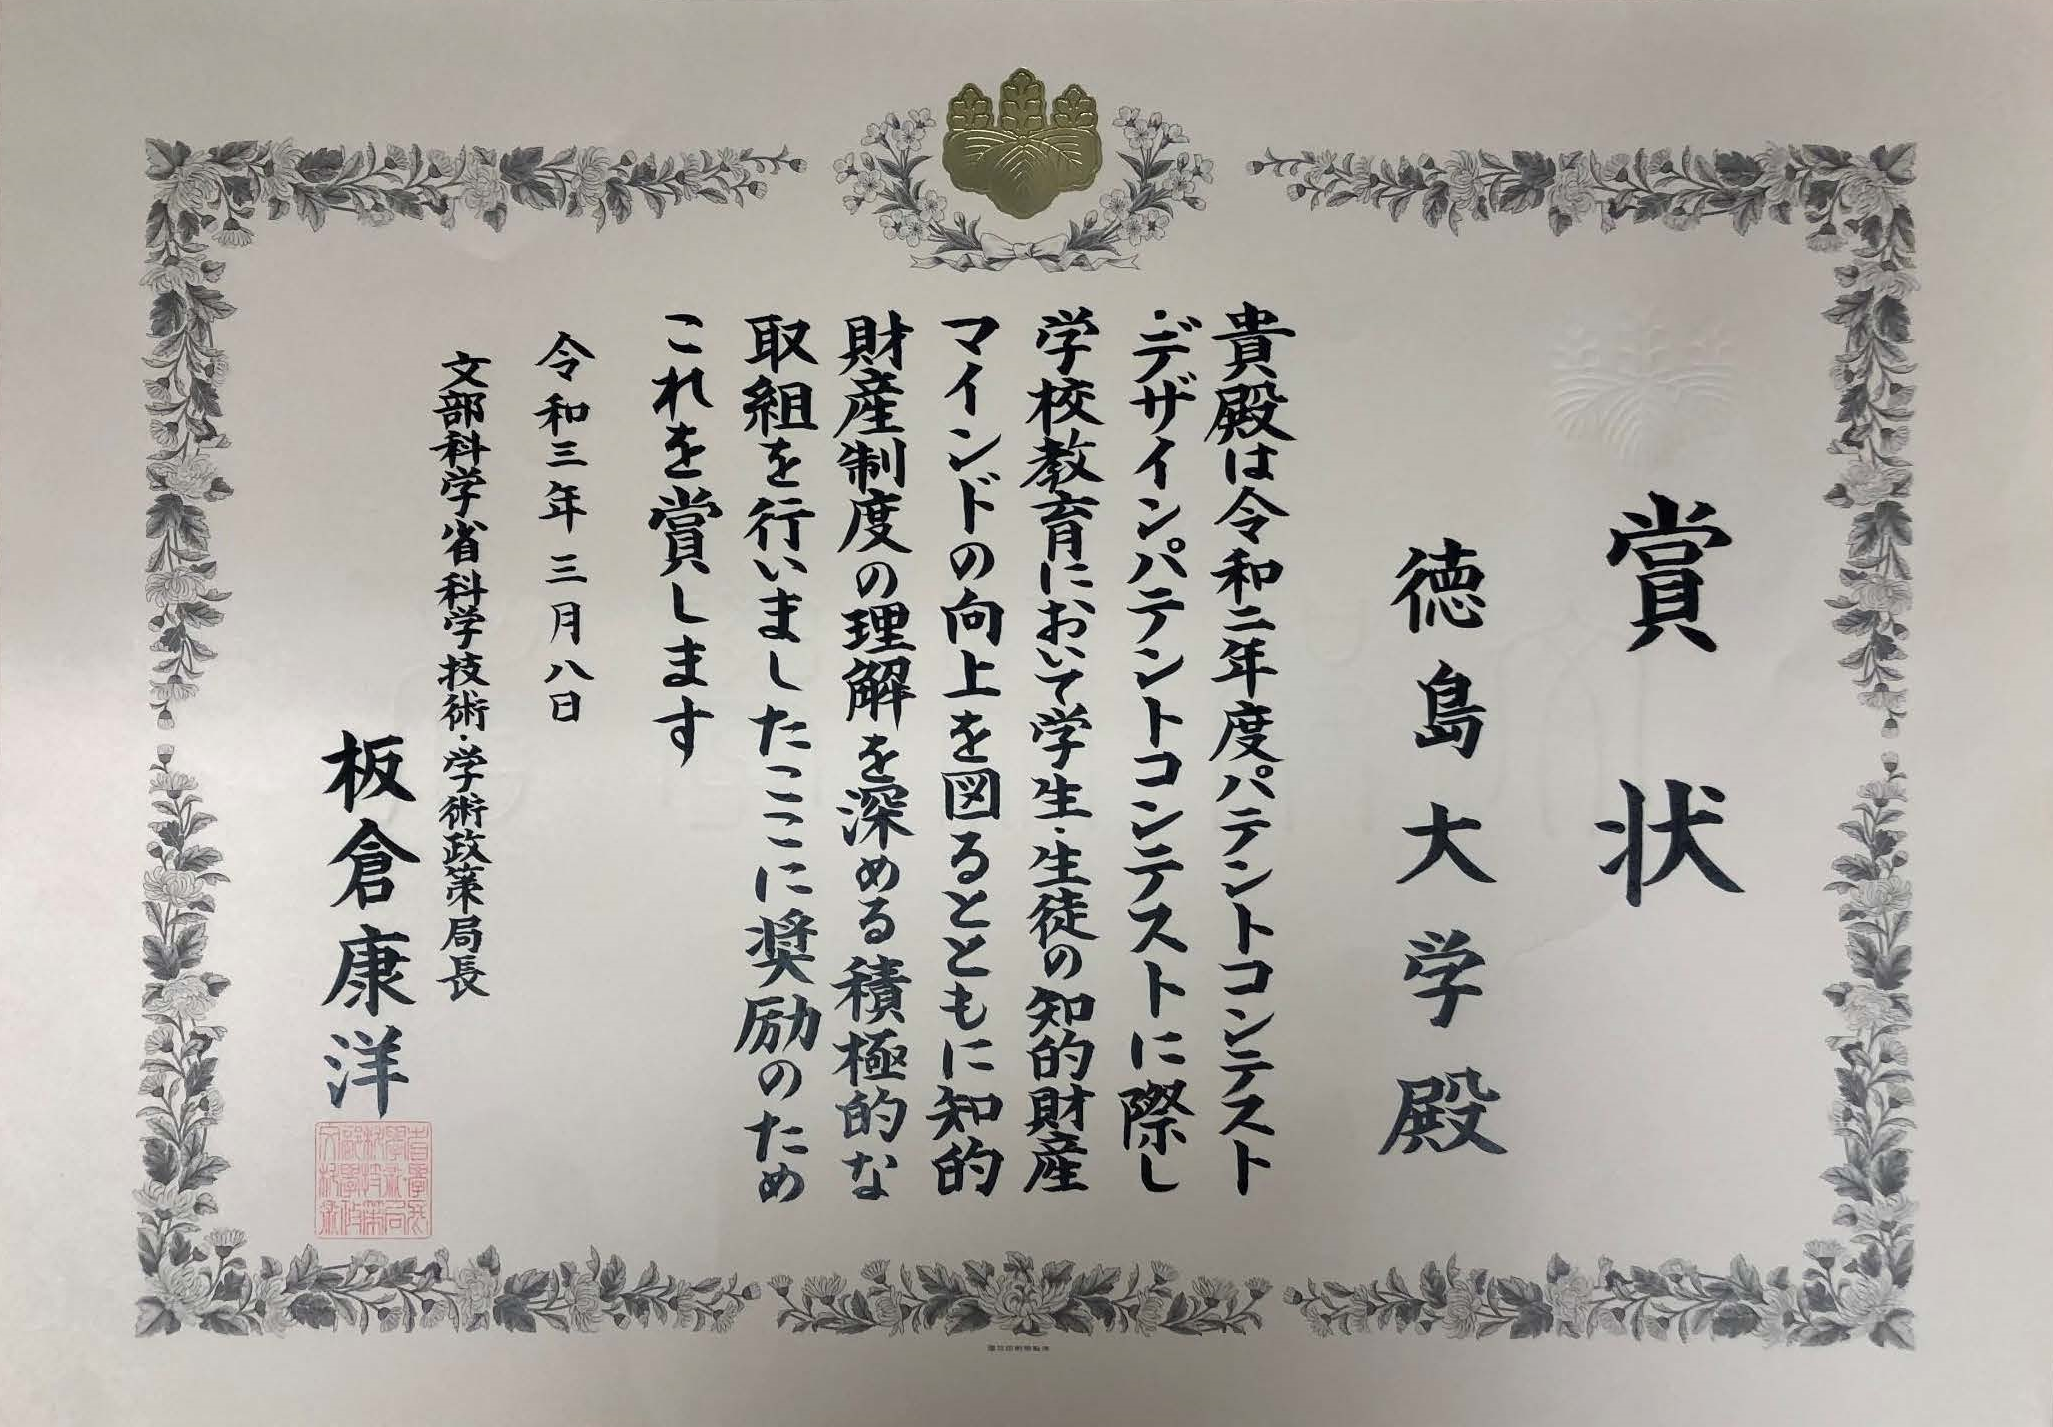 賞状
徳島大学殿
貴殿は令和二年度パテントコンテスト
・デザインパテントコンテストに際し
学校教育において学生・生徒の知的財産
マインドの向上を図るとともに知的
財産制度の理解を深める積極的な
取組を行いましたここに奨励のため
これを賞します
令和三年三月八日
文部科学省科学技術・学術政策局長
板倉康洋